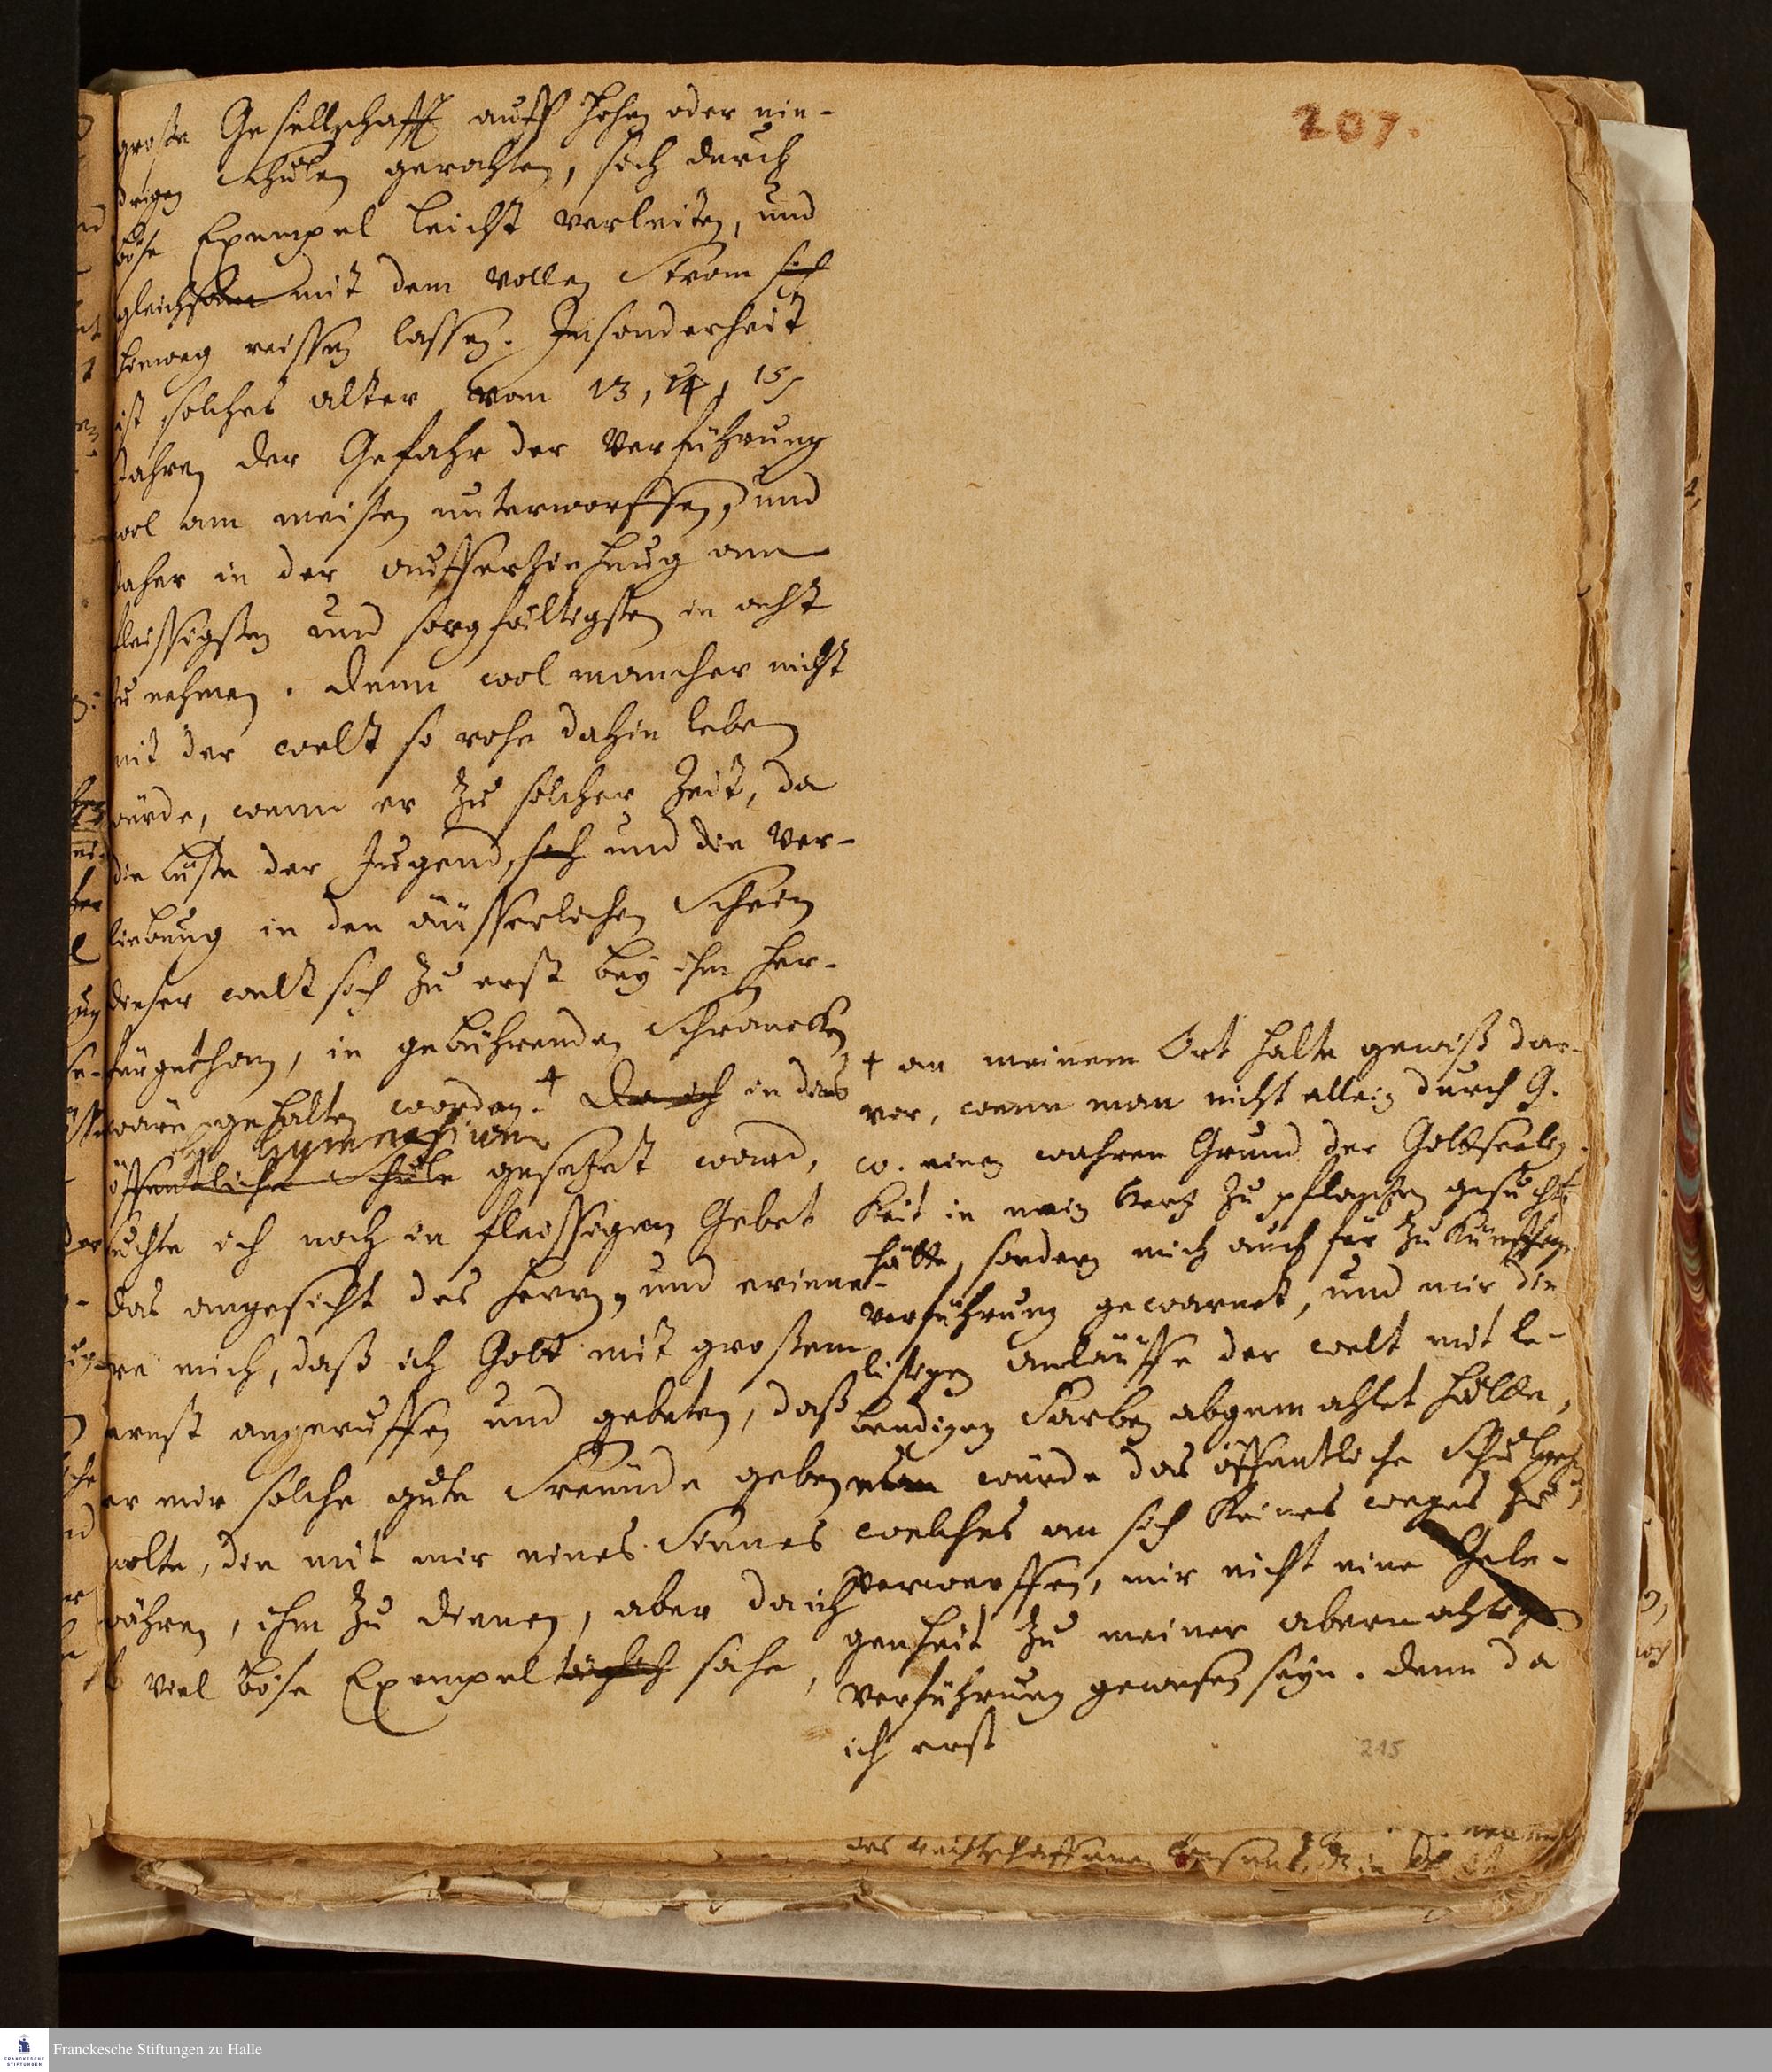 207.
große Gesellschafft auff hohen oder nie-
drigen Schulen gerahten, sich durch
böse Exempel leicht verleiten, und
gleichsam mit dem vollen Strom sich
hinweg reissen lassen. Insonderheit
ist solches alter vom 13, 14, 15
Jahren der Gefahr der Verführung
wol am meisten unterworffen, und
daher in der aufferziehung am
fleissigsten und sorgfältigsten in acht
zu nehmen. Denn wol mancher nicht
mit der welt so rohe dahin leben
würde, wenn er zu solcher Zeit, da
die lüste der Jugend, sich und die Ver-
liebung in den äusserlichen Schein
dieser welt sich zu erst bey ihm her-
fürgethan, in gebührenden Schrancken
wäre gehalten worden. + Da ich in das
Gymnasium
öffentliche Schule gesetzet ward,
suchte ich noch in fleissigem Gebet
das angesicht des Herrn, und erinne-
re mich, daß ich Gott mit großem
ernst angeruffen und gebeten, daß
er mir solche gute Freunde geben
wolte, die mit mir eines Sinnes
währen, ihm zu dienen, aber da ich
viel böse Exempel täglich sahe,
+ an meinem Ort halte gewiß dar-
vor, wenn man nicht allein durch G.
w. einen wahren Grund der Gottseelig-
keit in mein Hertz zu pflantzen gesucht
hätte, sondern mich auch für zukünfftige
verführung gewarnet, und mir die
listigen anläuffe der welt mit le-
bendigen Farben abgemahlet hätte,
würde das öffentliche Schulgehen
welches an sich keines weges zu
verwerffen, mir nicht eine Gele-
genheit zu meiner abermahligen
verführung gewesen seyn. denn da
ich erst
215
des rechtschaffenen
Franckesche Stiftungen zu Halle
FRANCKESCHE
STIFTUNGEN